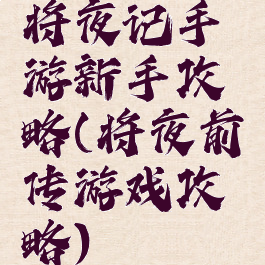 将夜记手
游新手攻
略(将夜前
传游戏攻
略)